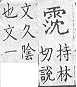 霃
持林
切說
文久陰
也文一